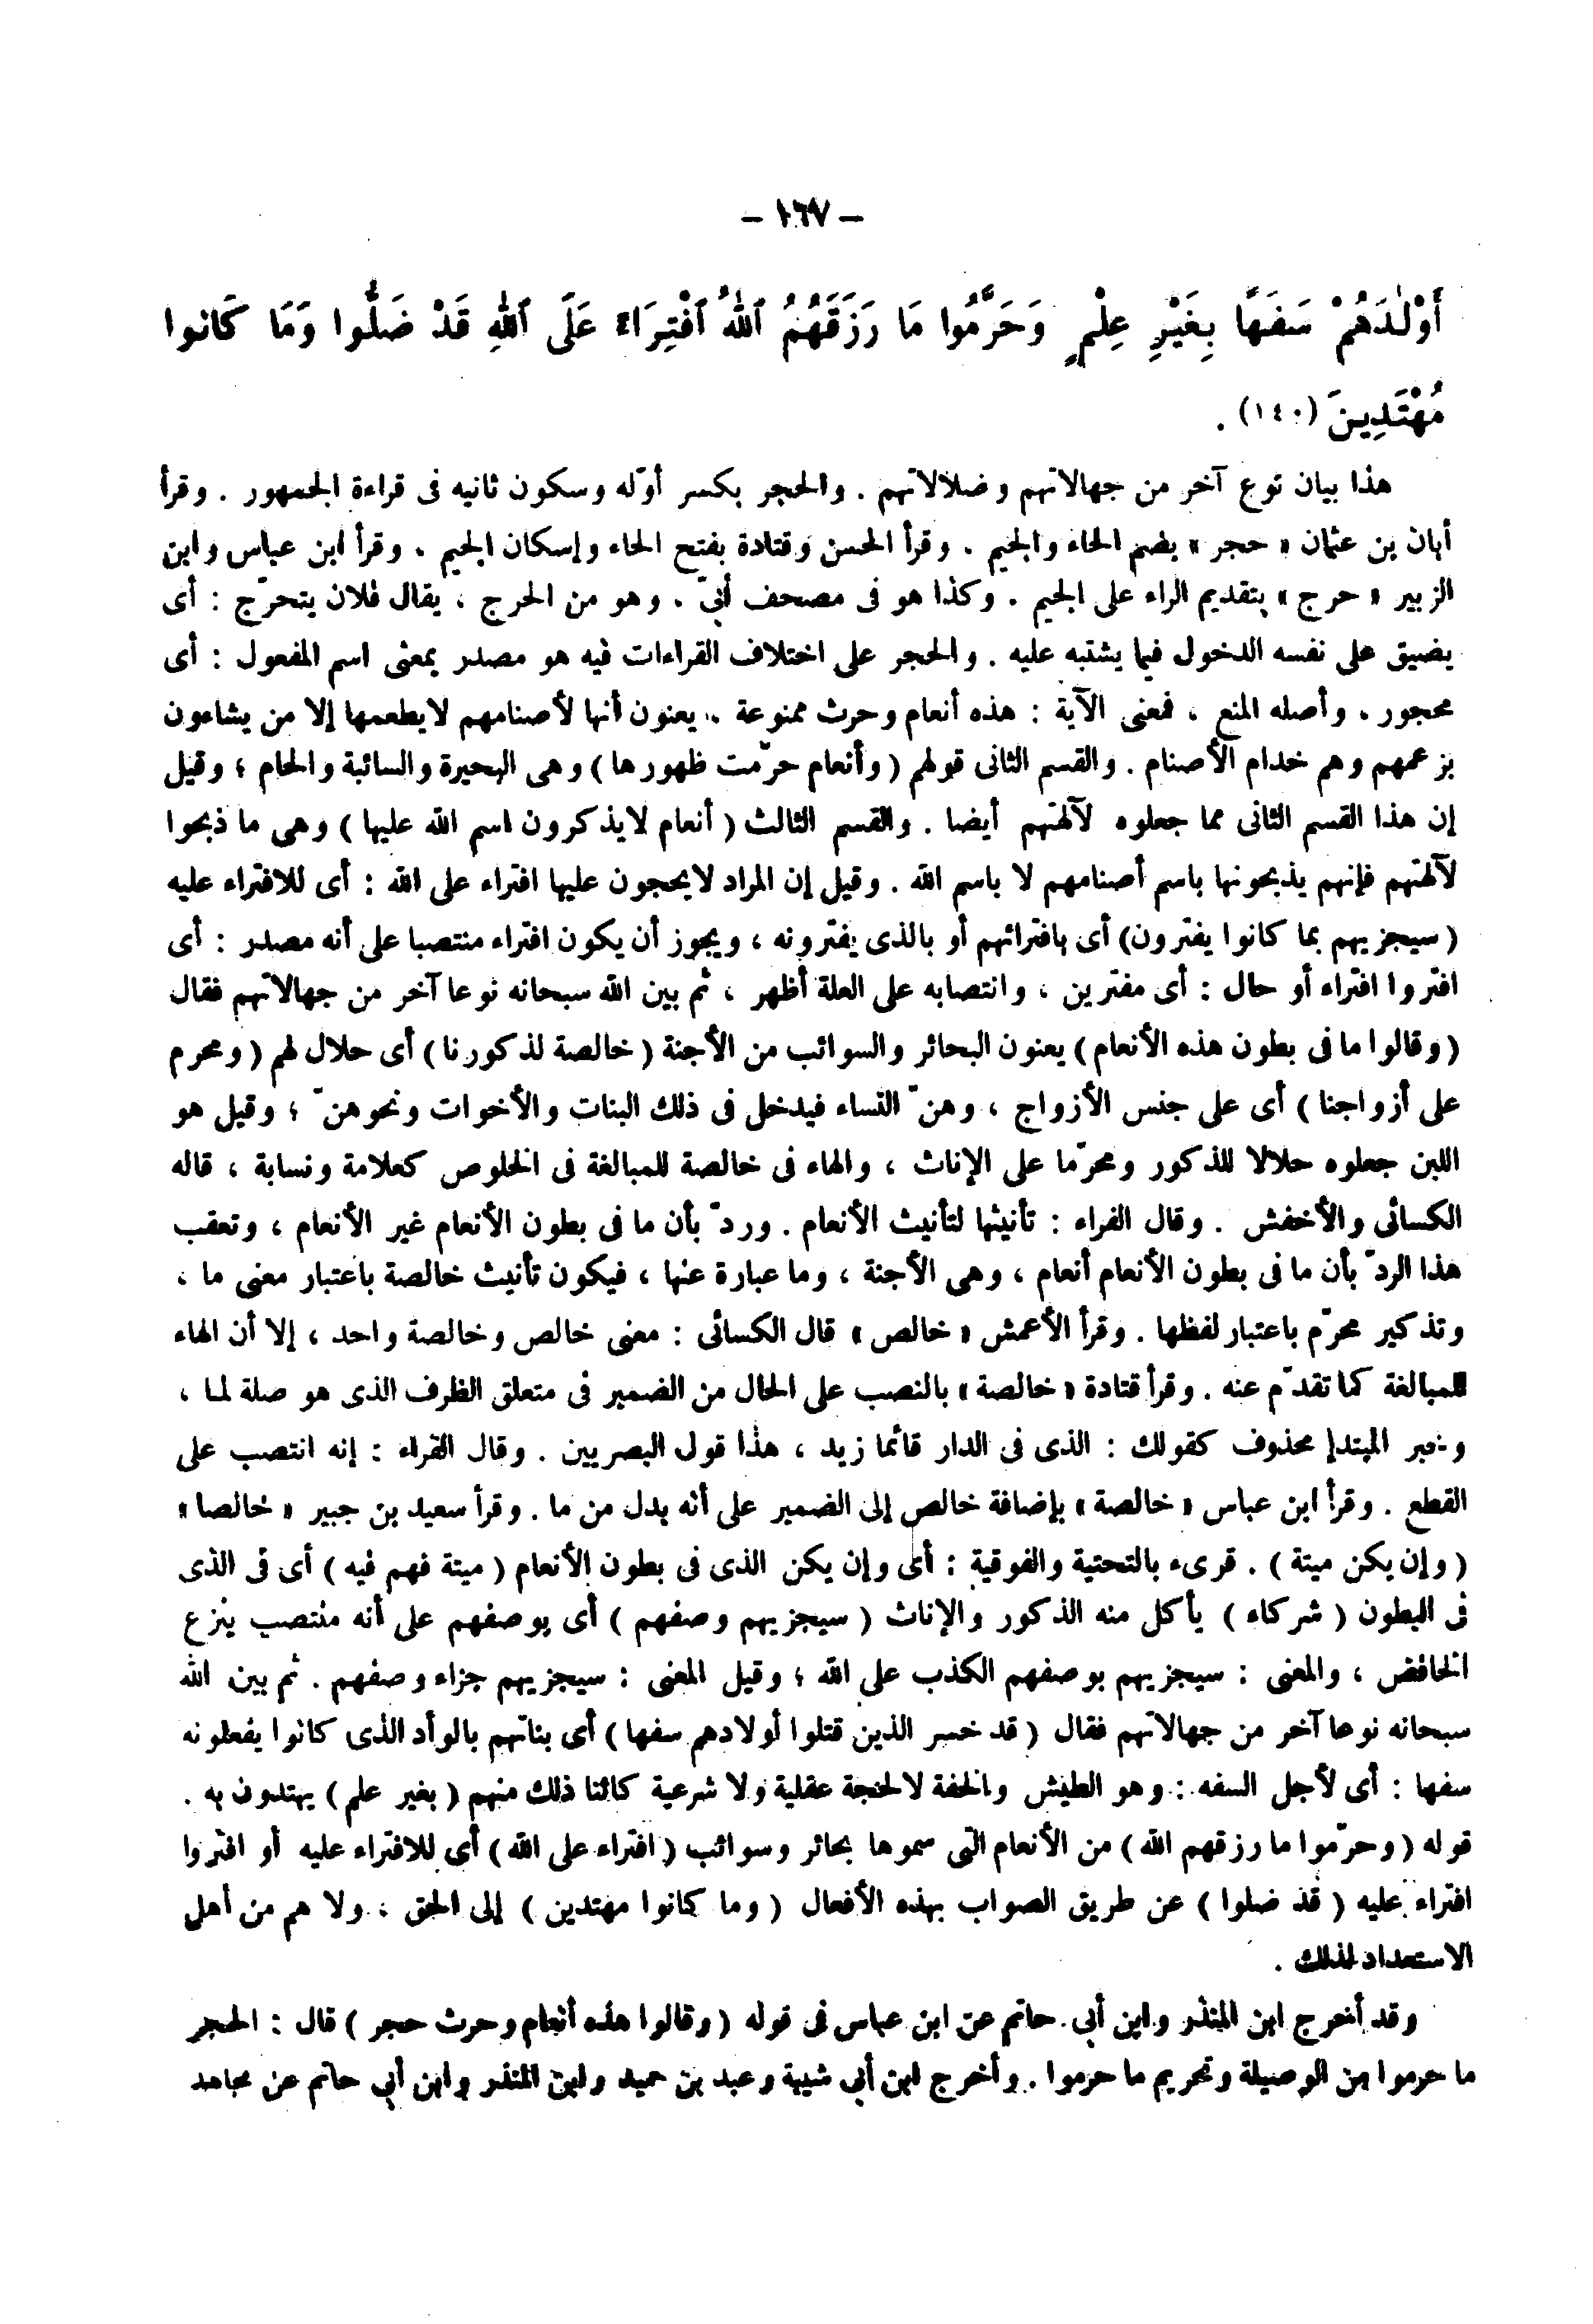 – ١٦٧ –
أَوْلَٰدَهُمْ سَفَهًا بِغَيْرِ عِلْمٍ وَحَرَّمُوا مَا رَزَقَهُمُ ٱللهُ ٱفْتِرَاءً عَلَى ٱللهِ قَدْ ضَلُّوا وَمَا كَانوا
مُهْتَدِينَ (١٤٠) .
هذا بيان نوع آخر من جهالاتهم وضلالاتهم . والحجر بكسر أوّله وسكون ثانيه فى قراءة الجمهور . وقرأ
أبان بن عثمان « حجر » بضم الحاء والجيم . وقرأ الحسن وقتادة بفتح الحاء وإسكان الجيم . وقرأ ابن عباس وابن
الزبير « حرج » بتقديم الراء على الجيم . وكذا هو فى مصحف أبىّ . وهو من الحرج ، يقال فلان يتحرّج : أى
يضيق على نفسه الدخول فيما يشتبه عليه . والحجر على اختلاف القراءات فيه هو مصدر بمعنى اسم المفعول : أى
محجور . وأصله المنع ، فمعنى الآية : هذه أنعام وحرث ممنوعة . يعنون أنها لأصنامهم لايطعمها إلا من يشاءون
بزعمهم وهم خدام الأصنام . والقسم الثانى قولهم ( وأنعام حرّمت ظهورها ) وهى البحيرة والسائبة والحام ؛ وقيل
إن هذا القسم الثانى مما جعلوه لآلهتهم أيضا . والقسم الثالث ( أنعام لايذكرون اسم الله عليها ) وهى ما ذبحوا
لآلهتهم فإنهم يذبحونها باسم أصنامهم لا باسم الله . وقيل إن المراد لايحجون عليها افتراء على الله : أى للافتراء عليه
( سيجزيهم بما كانوا يفترون) أى بافترائهم أو بالذى يفترونه ، ويجوز أن يكون افتراء منتصبا على أنه مصدر : أى
افتروا افتراء أو حال : أى مفترين ، وانتصابه على العلة أظهر ، ثم بين الله سبحانه نوعا آخر من جهالاتهم فقال
( وقالوا ما فى بطون هذه الأنعام ) يعنون البحائر والسوائب من الأجنة ( خالصة لذكورنا ) أى حلال لهم ( ومحرم
على أزواجنا ) أى على جنس الأزواج ، وهنّ النساء فيدخل فى ذلك البنات والأخوات ونحوهنّ ؛ وقيل هو
اللبن جعلوه حلالا للذكور ومحرّما على الإناث ، والهاء فى خالصة للمبالغة فى الخلوص كعلامة ونسابة ، قاله
الكسائى والأخفش . وقال الفراء : تأنيثها لتأنيث الأنعام . وردّ بأن ما فى بطون الأنعام غير الأنعام ، وتعقب
هذا الردّ بأن ما فى بطون الأنعام أنعام ، وهى الأجنة ، وما عبارة عنها ، فيكون تأنيث خالصة باعتبار معنى ما ،
وتذكير محرّم باعتبار لفظها . وقرأ الأعمش « خالص » قال الكسائى : معنى خالص وخالصة واحد ، إلا أن الهاء
للمبالغة كما تقدّم عنه . وقرأ قتادة « خالصة » بالنصب على الحال من الضمير فى متعلق الظرف الذى هو صلة لما ،
وخبر المبتدإ محذوف كقولك : الذى فى الدار قائما زيد ، هذا قول البصريين . وقال الفراء : إنه انتصب على
القطع . وقرأ ابن عباس « خالصة » بإضافة خالص إلى الضمير على أنه بدل من ما . وقرأ سعيد بن جبير « خالصا »
( وإن يكن ميتة ) . قرىء بالتحتية والفوقية : أى وإن يكن الذى فى بطون الأنعام ( ميتة فهم فيه ) أى فى الذى
فى البطون ( شركاء ) يأكل منه الذكور والإناث ( سيجزيهم وصفهم ) أى بوصفهم على أنه منتصب بنزع
الخافض ، والمعنى : سيجزيهم بوصفهم الكذب على الله ؛ وقيل المعنى : سيجزيهم جزاء وصفهم . ثم بين الله
سبحانه نوعا آخر من جهالاتهم فقال ( قد خسر الذين قتلوا أولادهم سفها ) أى بناتهم بالوأد الذى كانوا يفعلونه
سفها : أى لأجل السفه : وهو الطيش والخفة لا لحجة عقلية ولا شرعية كائنا ذلك منهم ( بغير علم ) يهتدون به .
قوله ( وحرّموا ما رزقهم الله ) من الأنعام التى سموها بحائر وسوائب ( افتراء على الله ) أى للافتراء عليه أو افتروا
افتراء عليه ( قد ضلوا ) عن طريق الصواب بهذه الأفعال ( وما كانوا مهتدين ) إلى الحق ، ولا هم من أهل
الاستعداد لذلك .
وقد أخرج ابن المنذر وابن أبى حاتم عن ابن عباس فى قوله ( وقالوا هذه أنعام وحرث حجر ) قال : الحجر
ما حرموا من الوصيلة وتحريم ما حرموا . وأخرج ابن أبى شيبة وعبد بن حميد وابن المنذر وابن أبى حاتم عن مجاهد